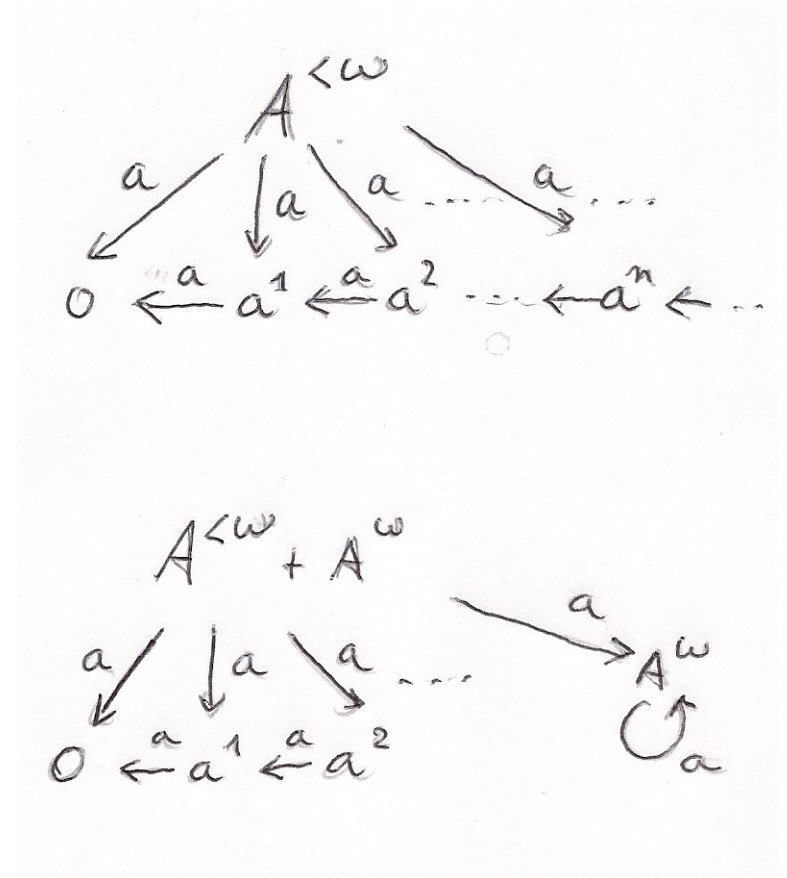 A^{<ω}
a a a ..... a .....
0 ←a— a^1 ←a— a^2 ..... ← a^n ← ..
A^{<ω} + A^ω
a
a a a ....
A^ω
0 ←a— a^1 ←a— a^2
a